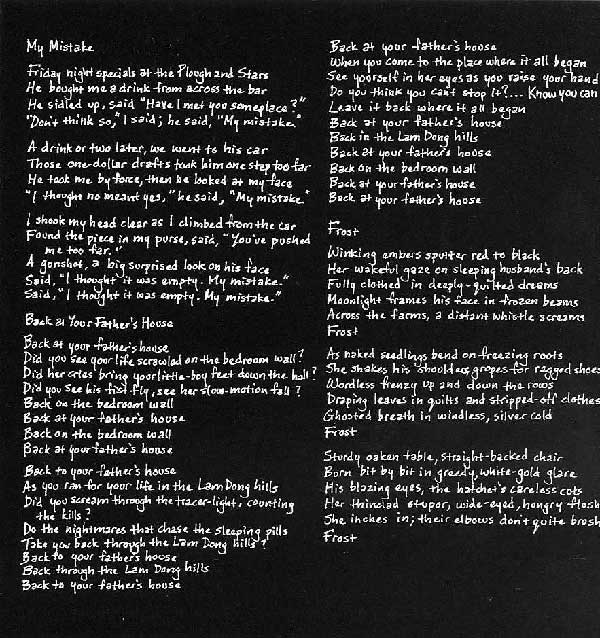 My Mistake
Friday night specials at the Plough and Stars
He bought me a drink from across the bar
He sidled up, said "Have I met you someplace?"
"Don't think so," I said; he said, "My mistake."
A drink or two later, we went to his car
Those one-dollar drafts took him one step too far
He took me by force, then he looked at my face
"I thought no meant yes," he said, "My mistake."
I shook my head clear as I climbed from the car
Found the piece in my purse, said, "You've pushed
me too far."
A gunshot, a big surprised look on his face
Said, "I thought it was empty. My mistake."
Said, "I thought it was empty. My mistake."
Back at Your Father's House
Back at your father's house
Did you see your life scrawled on the bedroom wall?
Did her cries bring your little-boy feet down the hall?
Did you see his fist fly, see her slow-motion fall?
Back on the bedroom wall
Back at your father's house
Back on the bedroom wall
Back at your father's house
Back to your father's house
As you ran for your life in the Lam Dong hills
Did you scream through the tracer-light, counting
the kills?
Do the nightmares that chase the sleeping pills
Take you back through the Lam Dong hills?
Back to your father's house
Back through the Lam Dong hills
Back to your father's house
Back at your father's house
When you come to the place where it all began
See yourself in her eyes as you raise your hand
Do you think you can't stop it?... Know you can
Leave it back where it all began
Back at your father's house
Back in the Lam Dong hills
Back at your father's house
Back on the bedroom wall
Back at your father's house
Back at your father's house
Frost
Winking embers sputter red to black
Her wakeful gaze on sleeping husband's back
Fully clothed in deeply-quilted dreams
Moonlight frames his face in frozen beams
Across the farms, a distant whistle screams
Frost
As naked seedlings bend on freezing roots
She shakes his shoulders, gropes for ragged shoes
Wordless frenzy up and down the rows
Draping leaves in quilts and stripped-off clothes
Ghosted breath in windless, silver cold
Frost
Sturdy oaken table, straight-backed chair
Burn bit by bit in greedy, white-gold glare
His blazing eyes, the hatchet's careless cuts
Her thinclad stupor, wide-eyed, hungry flesh
She inches in; their elbows don't quite brush
Frost